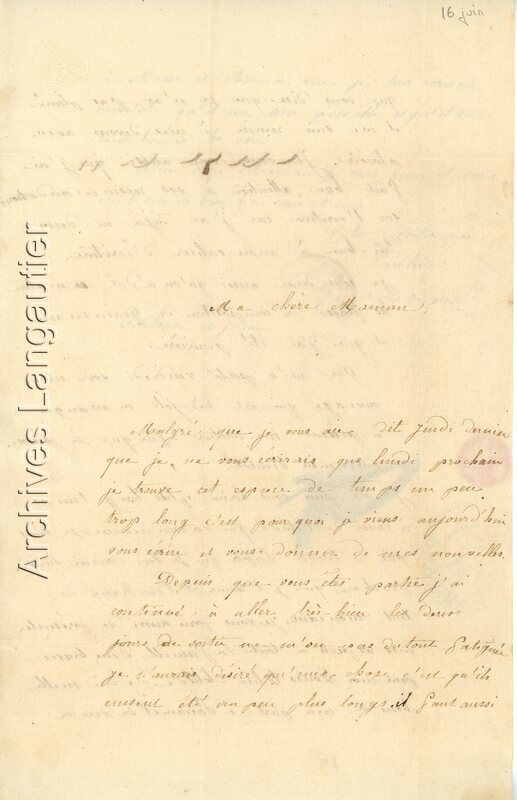 16 juin
Archives Langautier
Ma chere Maman,
Malgré que je vous aie dit Jeudi dernier
que je ne vous écrirais que lundi prochain
je trouve cet espace de temps un peu
trop long c'est pourquoi je viens aujourd'hui
vous écrire et vous donner de mes nouvelles.
Depuis que vous êtes partie j'ai
continué à aller très-bien les deux
jours de sortie ne m'ont pas du tout fatiguée
je n'aurais désiré qu'une chose c'est qu'ils
eussent été un peu plus longs. il faut aussi